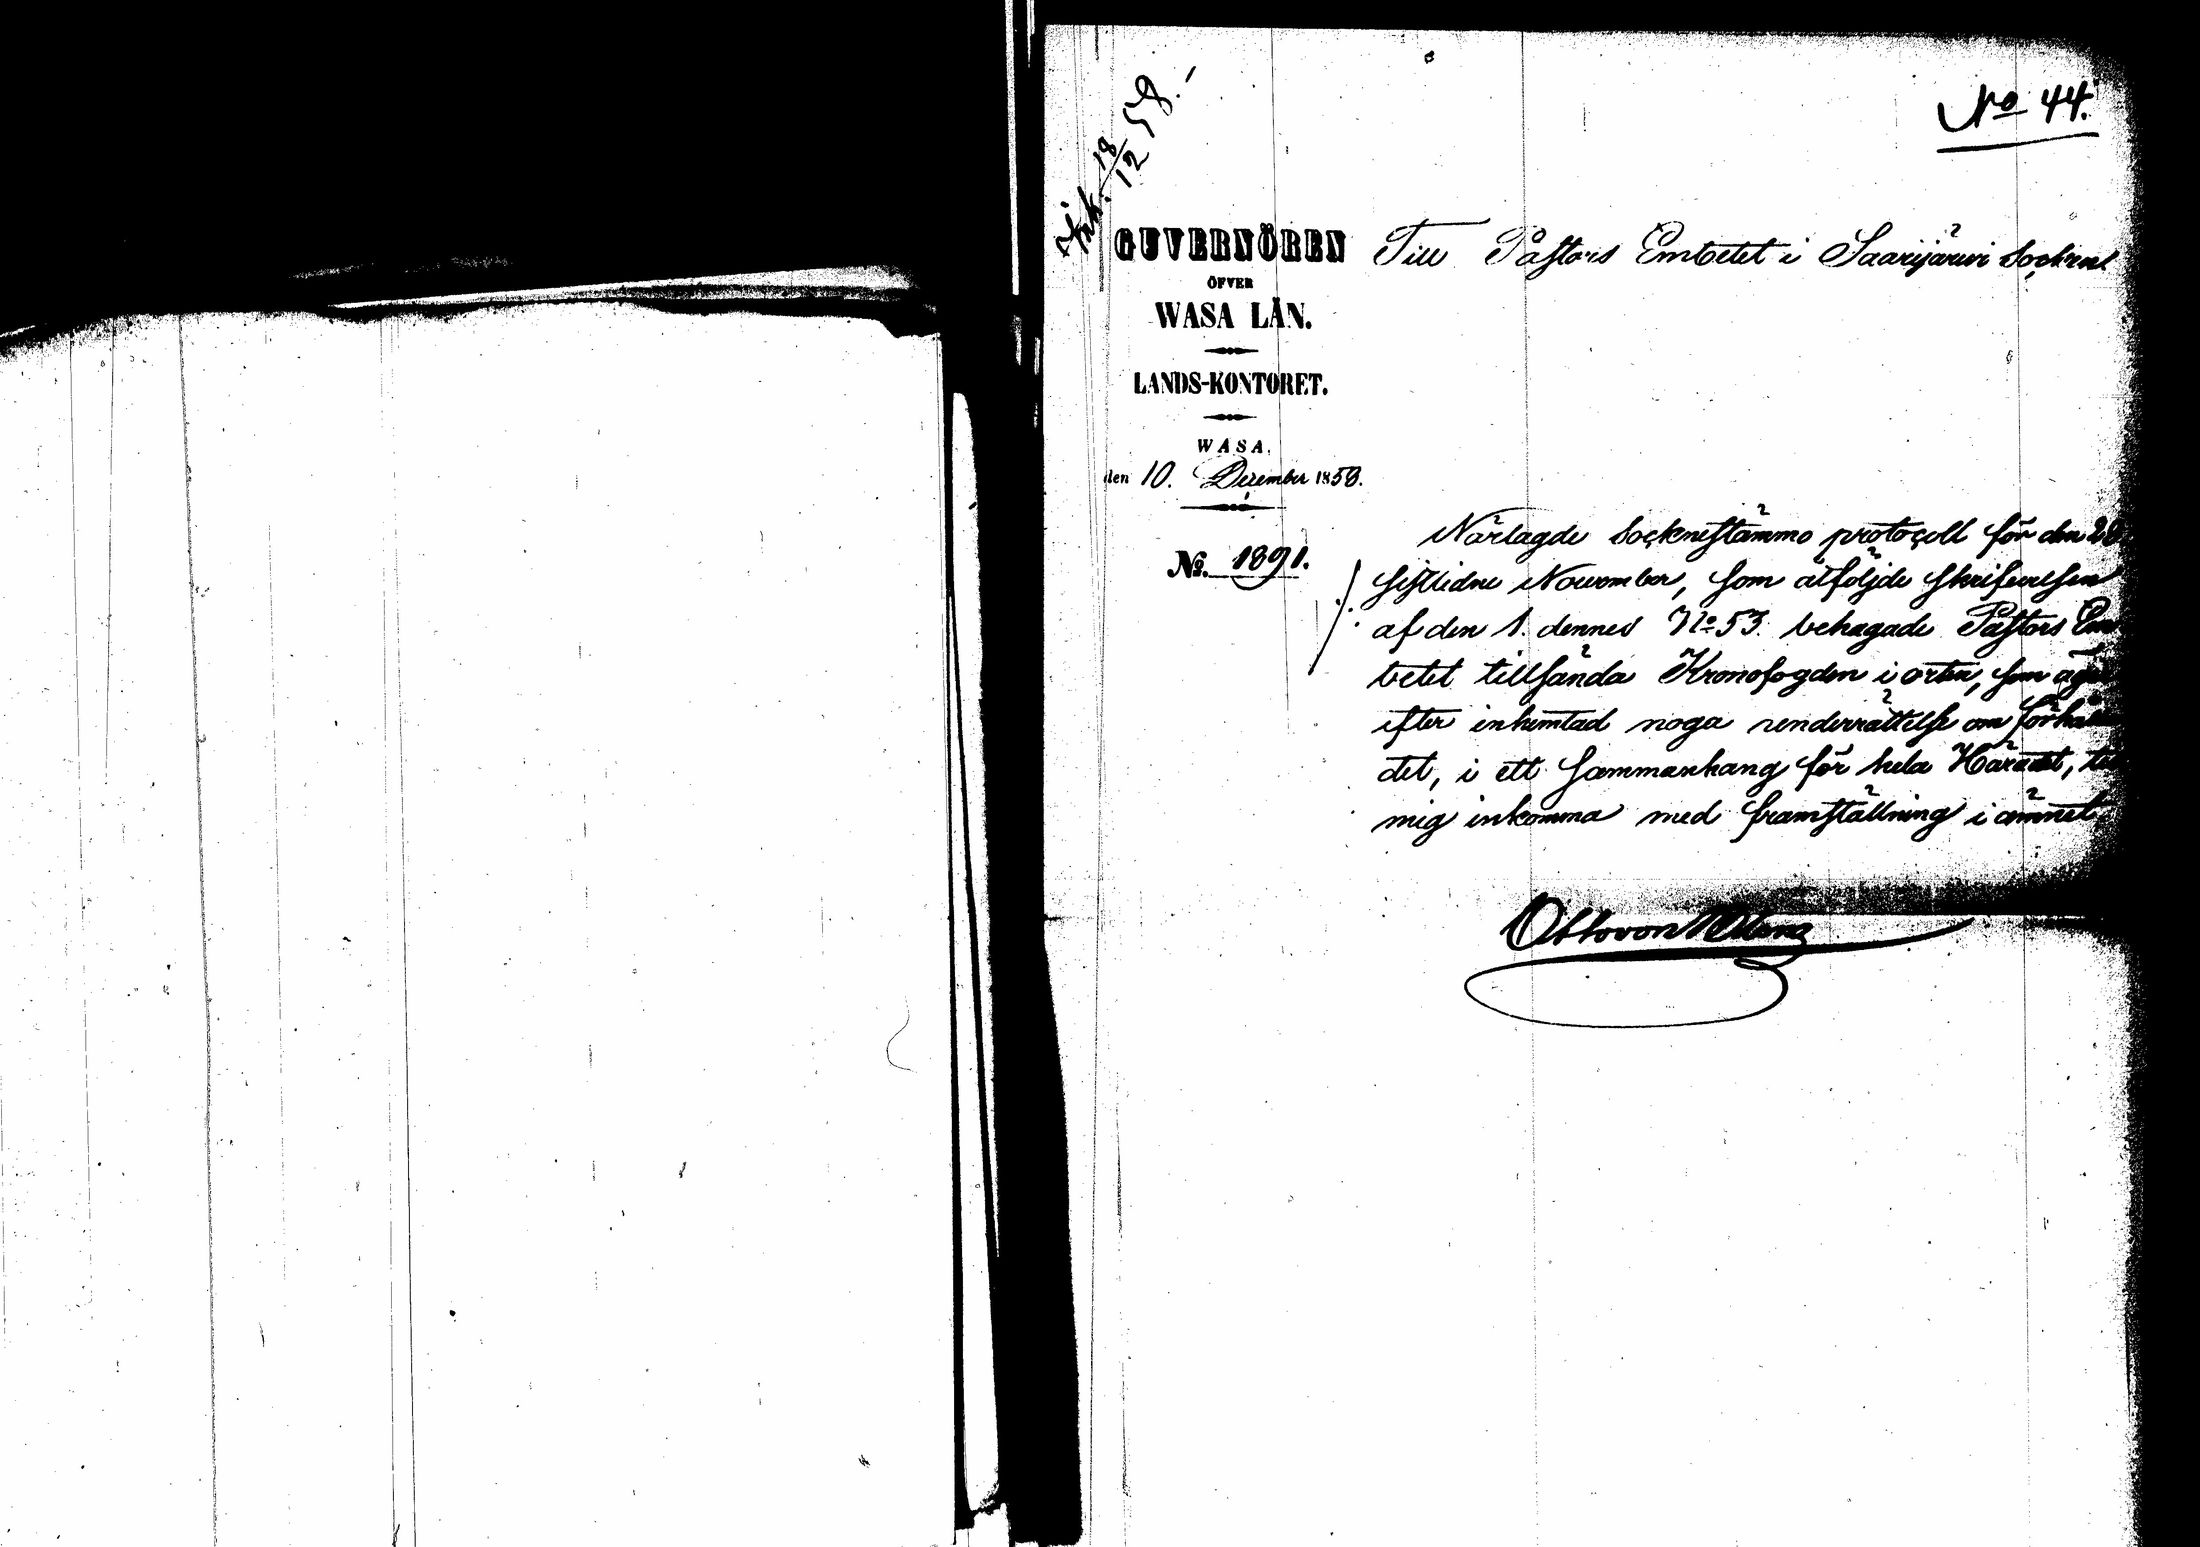 Nº 44.
Ink. 18/12 58.
GUVERNÖREN
ÖFVER
WASA LÄN.
LANDS-KONTORET.
WASA,
den 10. December 1858.
Nº. 1891.
Till Pastors Embetet i Saarijärvi Socken
Närlagde Sockenstämmo protocoll för den 28
sistlidne November, som åtföljde skrifvelsen
af den 1. dennes Nº 53. behagade Pastors Em
betet tillsända Kronofogden i orten, som äger
efter inhemtad noga underrättelse om förhållan
det, i ett sammanhang för hela Häradet, till
mig inkomma med framställning i ämnet.
Otto von